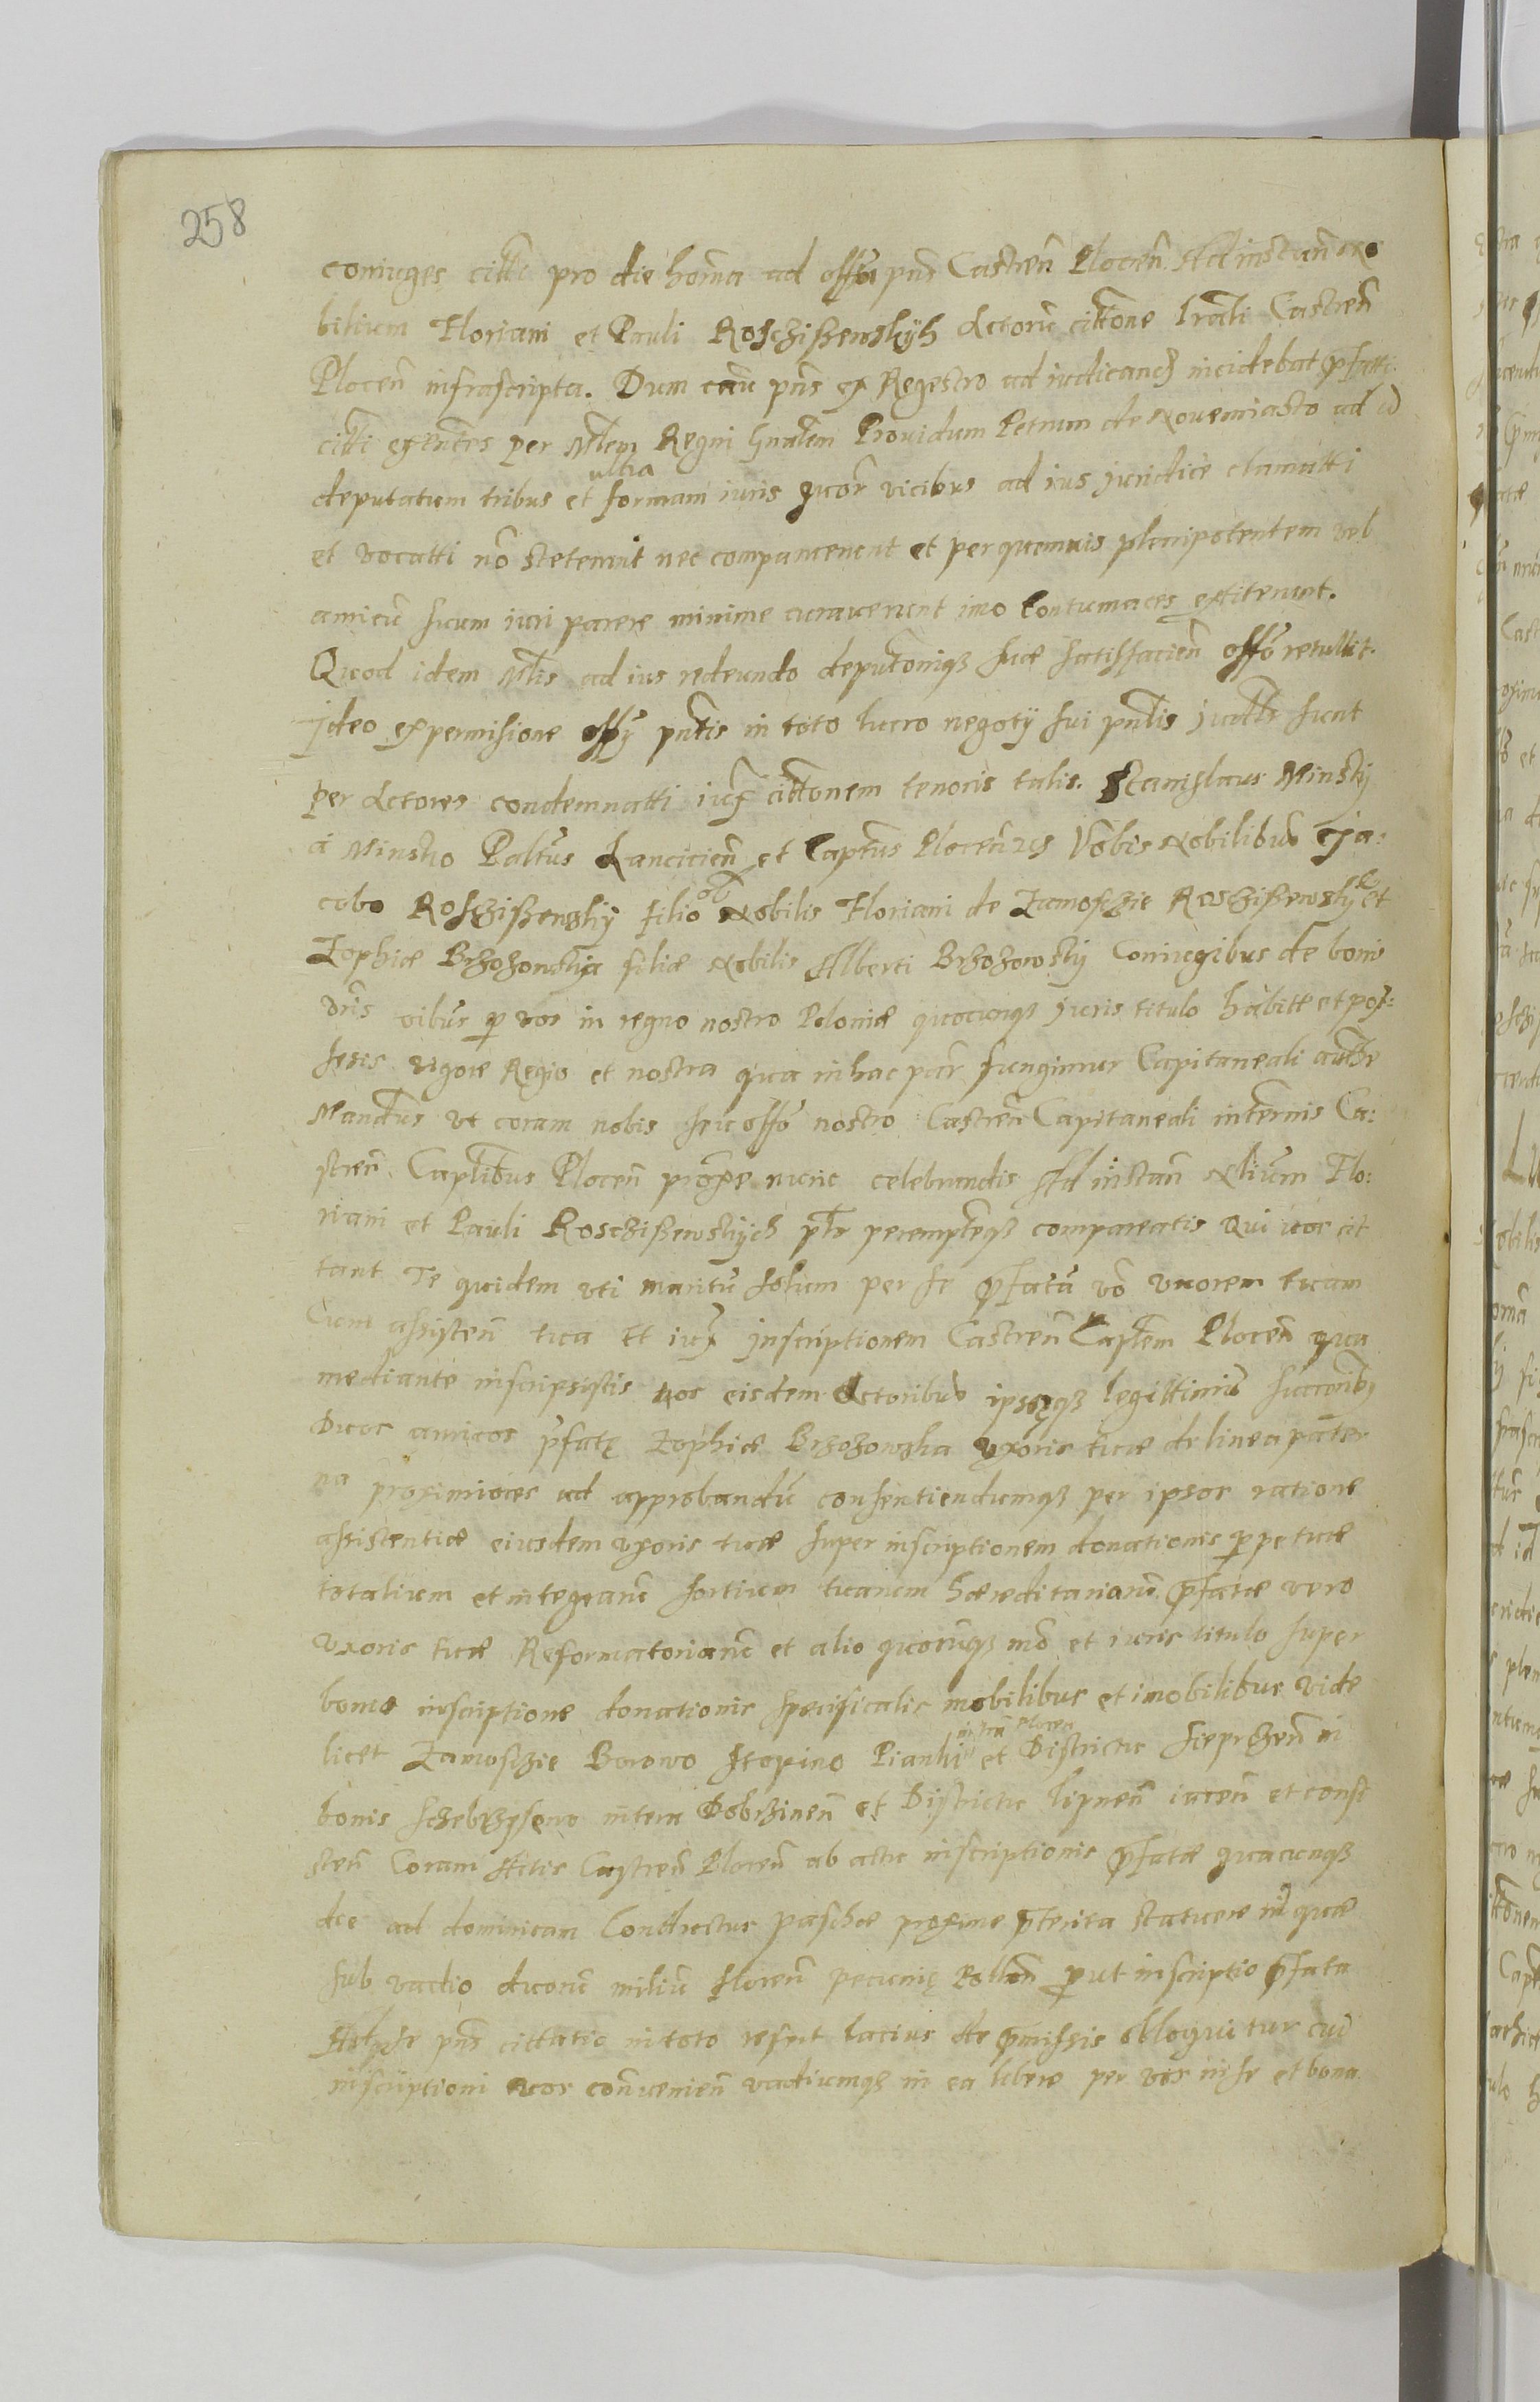 258
coniuges citti pro die hoīna ad offm pns Castren̄ Plocen̄ Ad instan̄ no
bilium Floriani et Pauli Roschißewskÿh Actorū cittone lrali Castren̄
Plocen̄ infrascripta. Dum cau pns ex Regestro ad iudicand incidebat pfatti
citti exentes per Mlem Regni Gnalem Prouidum Petrum de Nouemiasto ad id
deputatum tribus et ultra formam iuris quor vicibus ad ius juridice clamatti
et vocatti nō steterunt nec comparuerunt et per quemuis plenipotentem vel
amicū suum iuri parere minime curauerunt imo Contumaces extiterunt.
Quod idem Mlis ad ius redeundo deputonīqꝫ suæ satisfacien̄ offō retullit.
Ideo ex permisione offÿ pntis in toto lucro negotÿ sui pntis sunt
per Actores condemnatti iux cittonem tenoris talis. Stanislaus Minsky
á Minsko Paltus Lancicien̄ et Captus Plocen̄ Vobis Nobilibus Ja:
cobo Roschißewskÿ filio olī Nobilis Floriani de Zamoschie Roschißewsky et
Zophiæ Brzozowska filiæ Nobilis Alberti Brzozowsky Coniugibus de bonis
vris oibus p vos in regno nostro Poloniæ quocunqꝫ juris titulo habitt et pos:
sesis vigore Regio et nostra qua in hac par fungimur Capitaneali autte
Mandus ut coram nobis seu offō nostro Castren̄ Capitaneali in termis Ca:
stren̄ Captlibus Plocen̄ proxe nunc celebrandis Ad instan̄ Nlium Flo:
riani et Pauli Roschißewskÿch ptr perempteqꝫ compareatis Qui vos cit
tant Te quidem uti maritū solum per se pfatā vō uxorem tuam
Cum assisten̄ tua Et iux Inscriptionem Castren̄ Captem Plocen̄ qua
mediante inscripsistis vos eisdem Actoribus ipsęqꝫ legittimis succoribꝫ
Duos amicos pfatę Zophiæ Brzozowska uxoris tuæ de linea pater
na proximiores ad approbandū consentiendumqꝫ per ipsos ratione
assistentiæ eiusdem uxoris tuæ super inscriptionem donationis ppetuæ
totalium et integrarū sortium tuarum hæreditariarū pfatæ vero
uxoris tuæ Reformatoriarū et alio quocunqꝫ mō et iuris titulo super
bonis inscriptione donationis specificatis mobilibus et imobilibus vide
licet Zamoschie Borowo Stopino Pianki in tra Plocen et Districtu Sieprzen̄ in
bonis Schebrzysewo in terra Dobrzinen̄ et Districtu Lipnen̄ iacen̄ et consi
sten̄ Coram Actis Castren̄ Plocen̄ ab actu inscriptionis pfatæ quacunqꝫ
die ad dominicam Conductus paschæ proxime pterita statuere quæ
sub vadio duorū miliū floren̄ pecunię Pollon̄ put inscriptio pfata
Ad se pns cittatio in toto refert latius de pmissis obloquitur cui
inscriptioni vos conuenien̄ vadiumqꝫ in ea libere per vos in se et bona